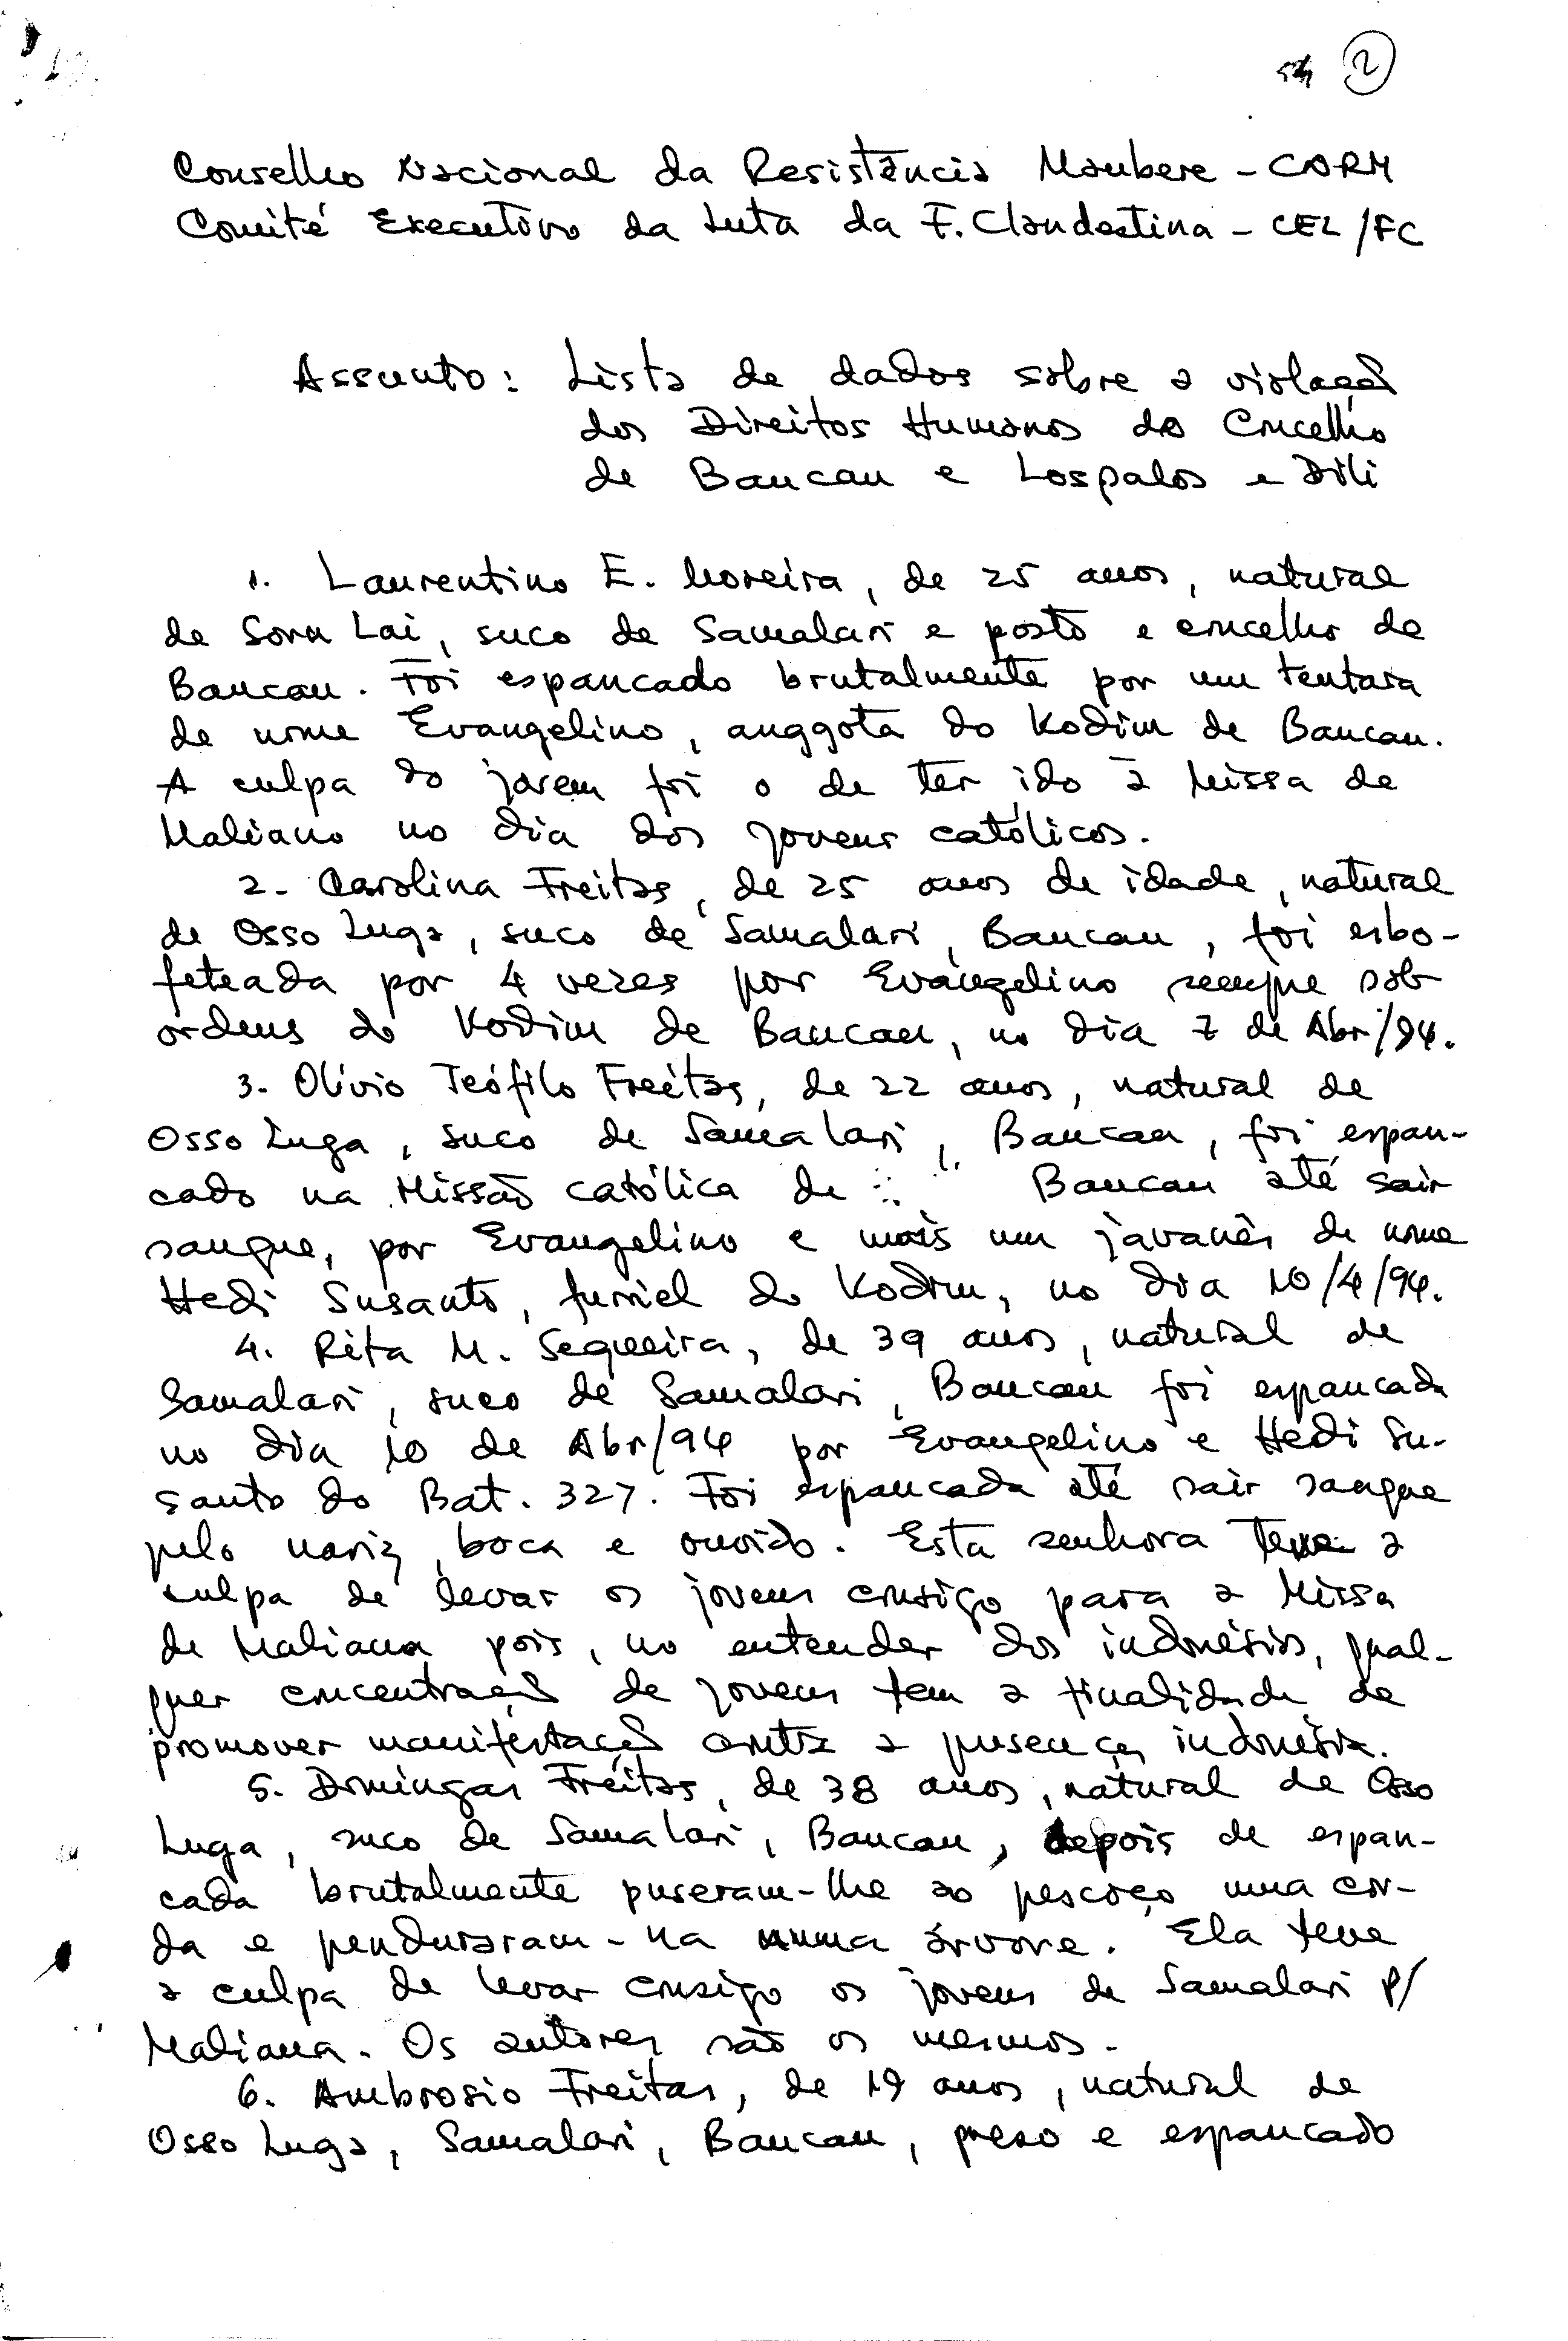 2
Conselho Nacional da Resistência Maubere - CNRM
Comité Executivo da Luta da F. Clandestina - CEL/FC
Assunto: Lista de dados sobre a violação
dos Direitos Humanos do Concelho
de Baucau e Lospalos e Dili
1. Laurentino E. Moreira, de 25 anos, natural
de Soru Lai, suco de Samalari e posto e concelho de
Baucau. Foi espancado brutalmente por um tentara
de nome Evangelino, anggota do Kodim de Baucau.
A culpa do jovem foi o de ter ido à Missa de
Maliano no dia dos jovens católicos.
2. Carolina Freitas, de 25 anos de idade, natural
de Osso Luga, suco de Samalari, Baucau, foi esbo-
feteada por 4 vezes por Evangelino sempre sob
ordens do Kodim de Baucau, no dia 7 de Abr/94.
3. Olívio Teófilo Freitas, de 22 anos, natural de
Osso Luga, suco de Samalari, Baucau, foi espan-
cado na Missão católica de Baucau até sair
sangue, por Evangelino e mais um javanês de nome
Hedi Susanto, furriel do Kodim, no dia 10/4/94.
4. Rita M. Sequeira, de 39 anos, natural de
Samalari, suco de Samalari, Baucau foi espancada
no dia 10 de Abr/94 por Evangelino e Hedi Su-
santo do Bat. 327. Foi espancada até sair sangue
pelo nariz, boca e ouvido. Esta senhora teve a
culpa de levar os jovens consigo para a Missa
de Maliana pois, no entender dos indonésios, qual-
quer concentração de jovens tem a finalidade de
promover manifestação contra a presença indonésia.
5. Domingas Freitas, de 38 anos, natural de Osso
Luga, suco de Samalari, Baucau, depois de espan-
cada brutalmente puseram-lhe ao pescoço uma cor-
da e penduraram-na numa árvore. Ela teve
a culpa de levar consigo os jovens de Samalari p/
Maliana. Os autores são os mesmos.
6. Ambrosio Freitas, de 19 anos, natural de
Osso Luga, Samalari, Baucau, preso e espancado